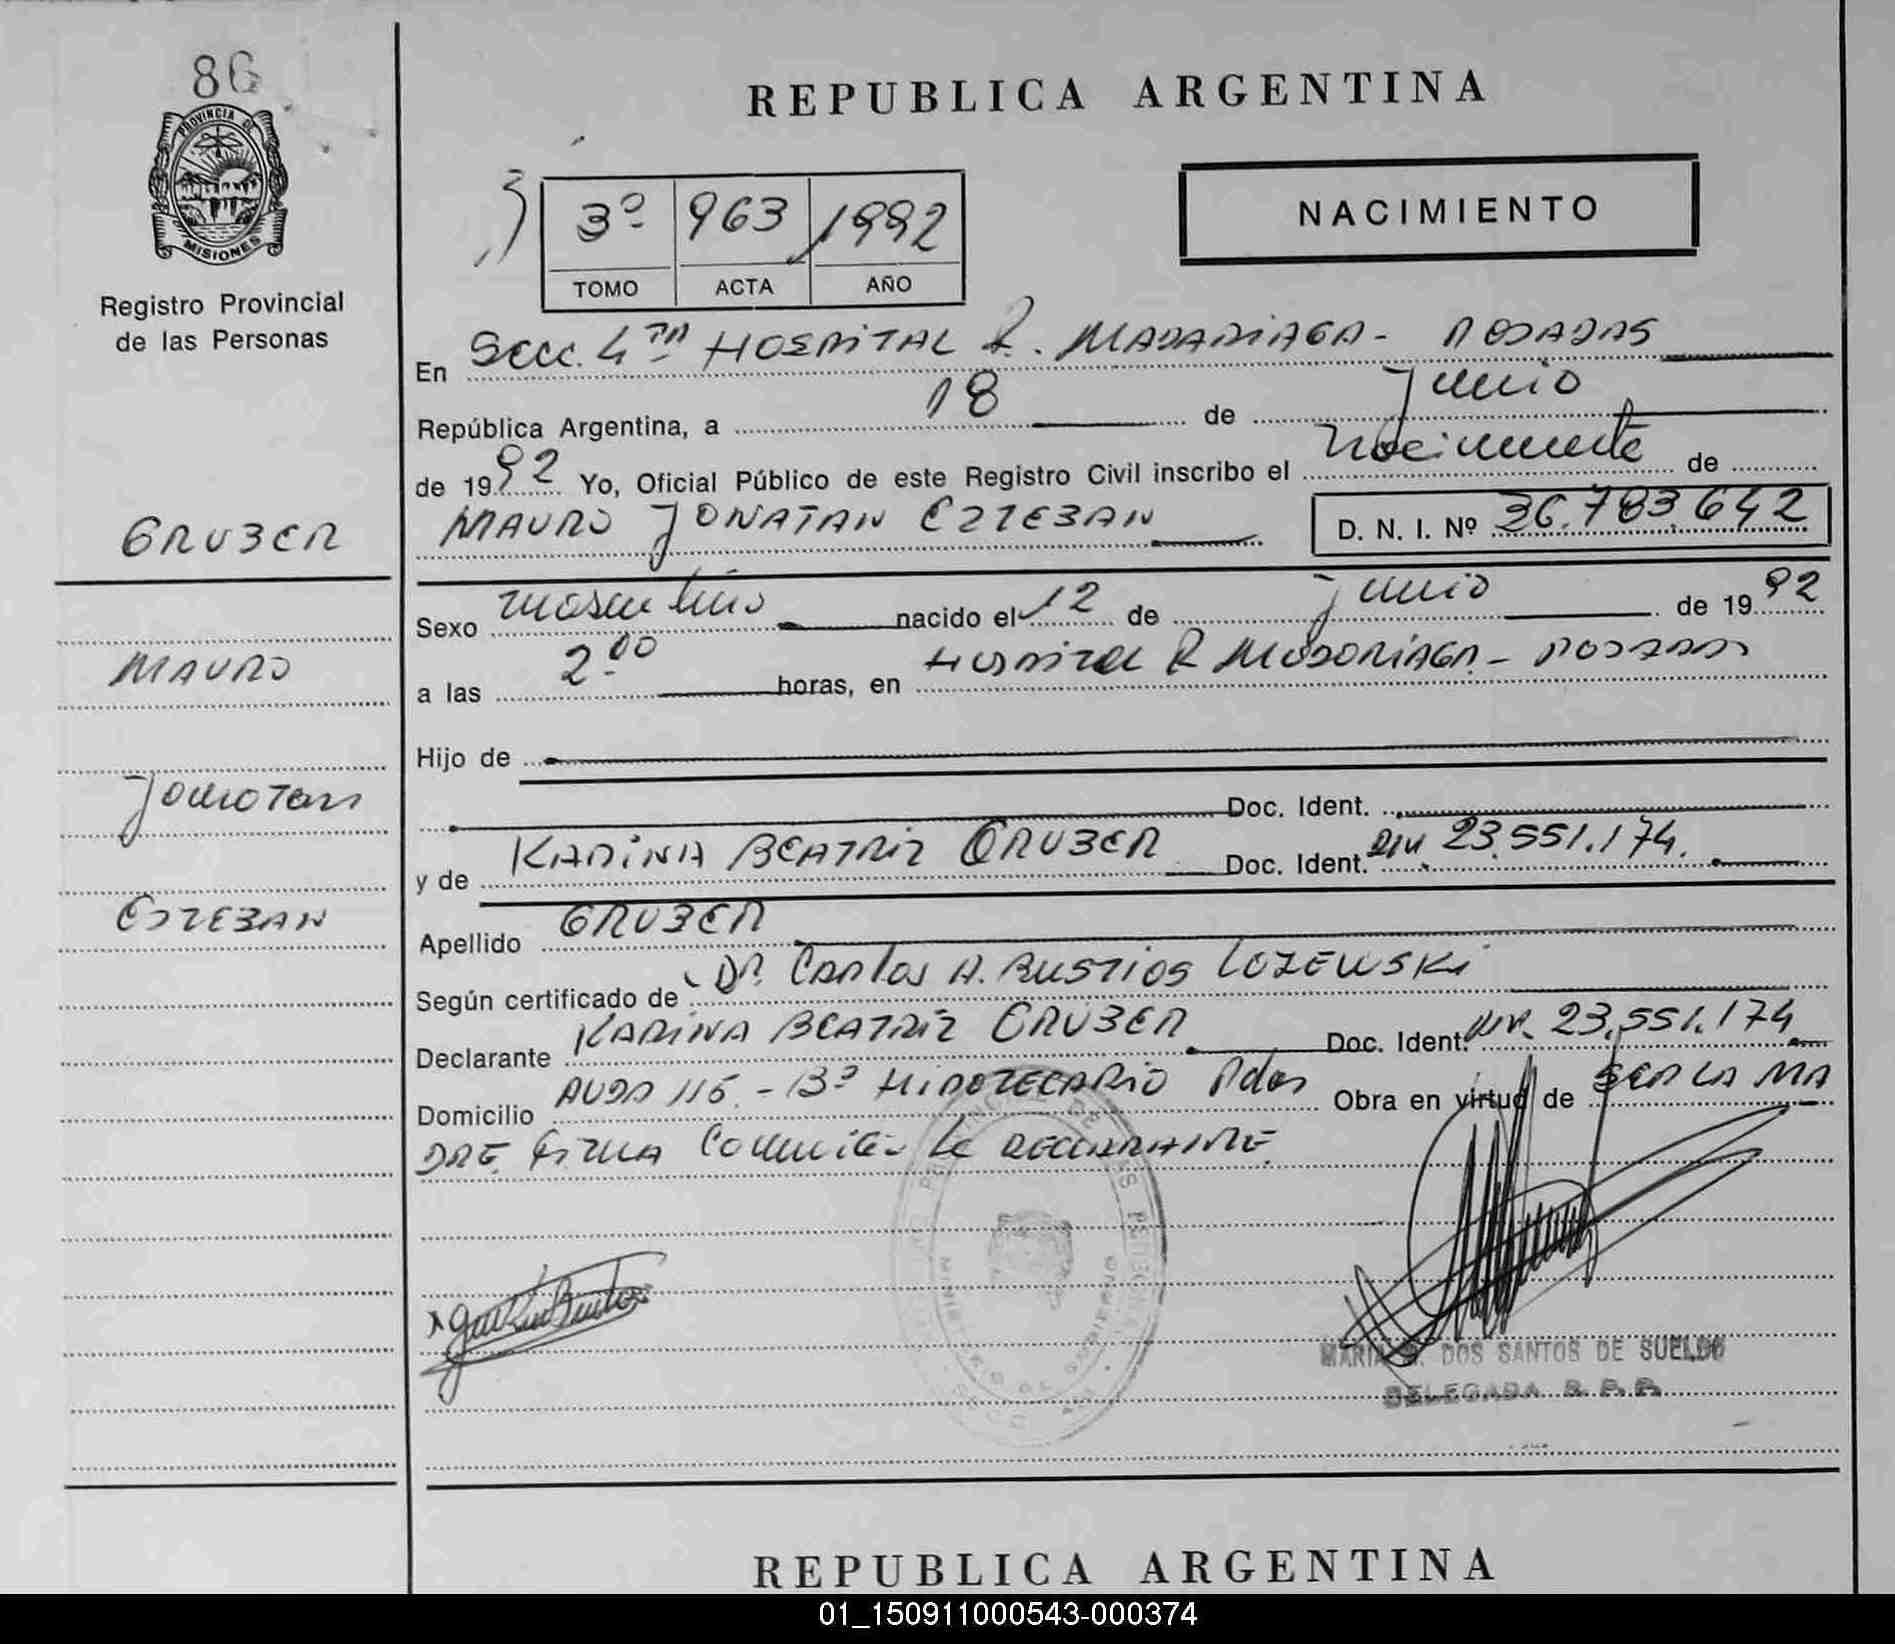 86
PROVINCIA DE
MISIONES
Registro Provincial
de las Personas
REPUBLICA ARGENTINA
3º 963 1992
TOMO ACTA AÑO
NACIMIENTO
En Secc. 4ta HOSPITAL R. MADARIAGA - POSADAS
República Argentina, a 18 de junio
de 1992 Yo, Oficial Público de este Registro Civil inscribo el nacimiento de
MAURO JONATAN ESTEBAN D. N. I. Nº 36.783.642
GRUBER
MAURO
Jonatan
ESTEBAN
Sexo masculino nacido el 12 de junio de 1992
a las 2.00 horas, en Hospital R MADARIAGA - POSADAS
Hijo de
Doc. Ident.
y de KARINA BEATRIZ GRUBER Doc. Ident. DNI 23.551.174.
Apellido GRUBER
Según certificado de DR. Carlos A. BUSTIOS LOZEWSKI
Declarante KARINA BEATRIZ GRUBER Doc. Ident. 23.551.174
Domicilio AVDA 115 - Bº HIPOTECARIO Pdas Obra en virtud de SER LA MA
DRE. FIRMA la DECLARANTE.
MARIA DOS SANTOS DE SUELDO
DELEGADA R. P. P.
REPUBLICA ARGENTINA
01_150911000543-000374